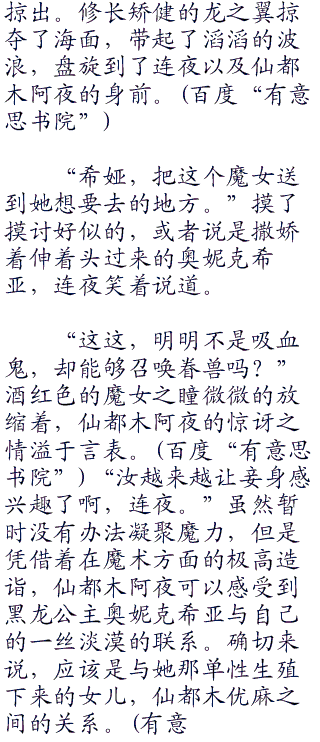 掠出。修长矫健的龙之翼掠
夺了海面，带起了滔滔的波
浪，盘旋到了连夜以及仙都
木阿夜的身前。(百度“有意
思书院”)
“希娅，把这个魔女送
到她想要去的地方。”摸了
摸讨好似的，或者说是撒娇
着伸着头过来的奥妮克希
亚，连夜笑着说道。
“这这，明明不是吸血
鬼，却能够召唤眷兽吗？”
酒红色的魔女之瞳微微的放
缩着，仙都木阿夜的惊讶之
情溢于言表。(百度“有意思
书院”)“汝越来越让妾身感
兴趣了啊，连夜。”虽然暂
时没有办法凝聚魔力，但是
凭借着在魔术方面的极高造
诣，仙都木阿夜可以感受到
黑龙公主奥妮克希亚与自己
的一丝淡漠的联系。确切来
说，应该是与她那单性生殖
下来的女儿，仙都木优麻之
间的关系。(有意